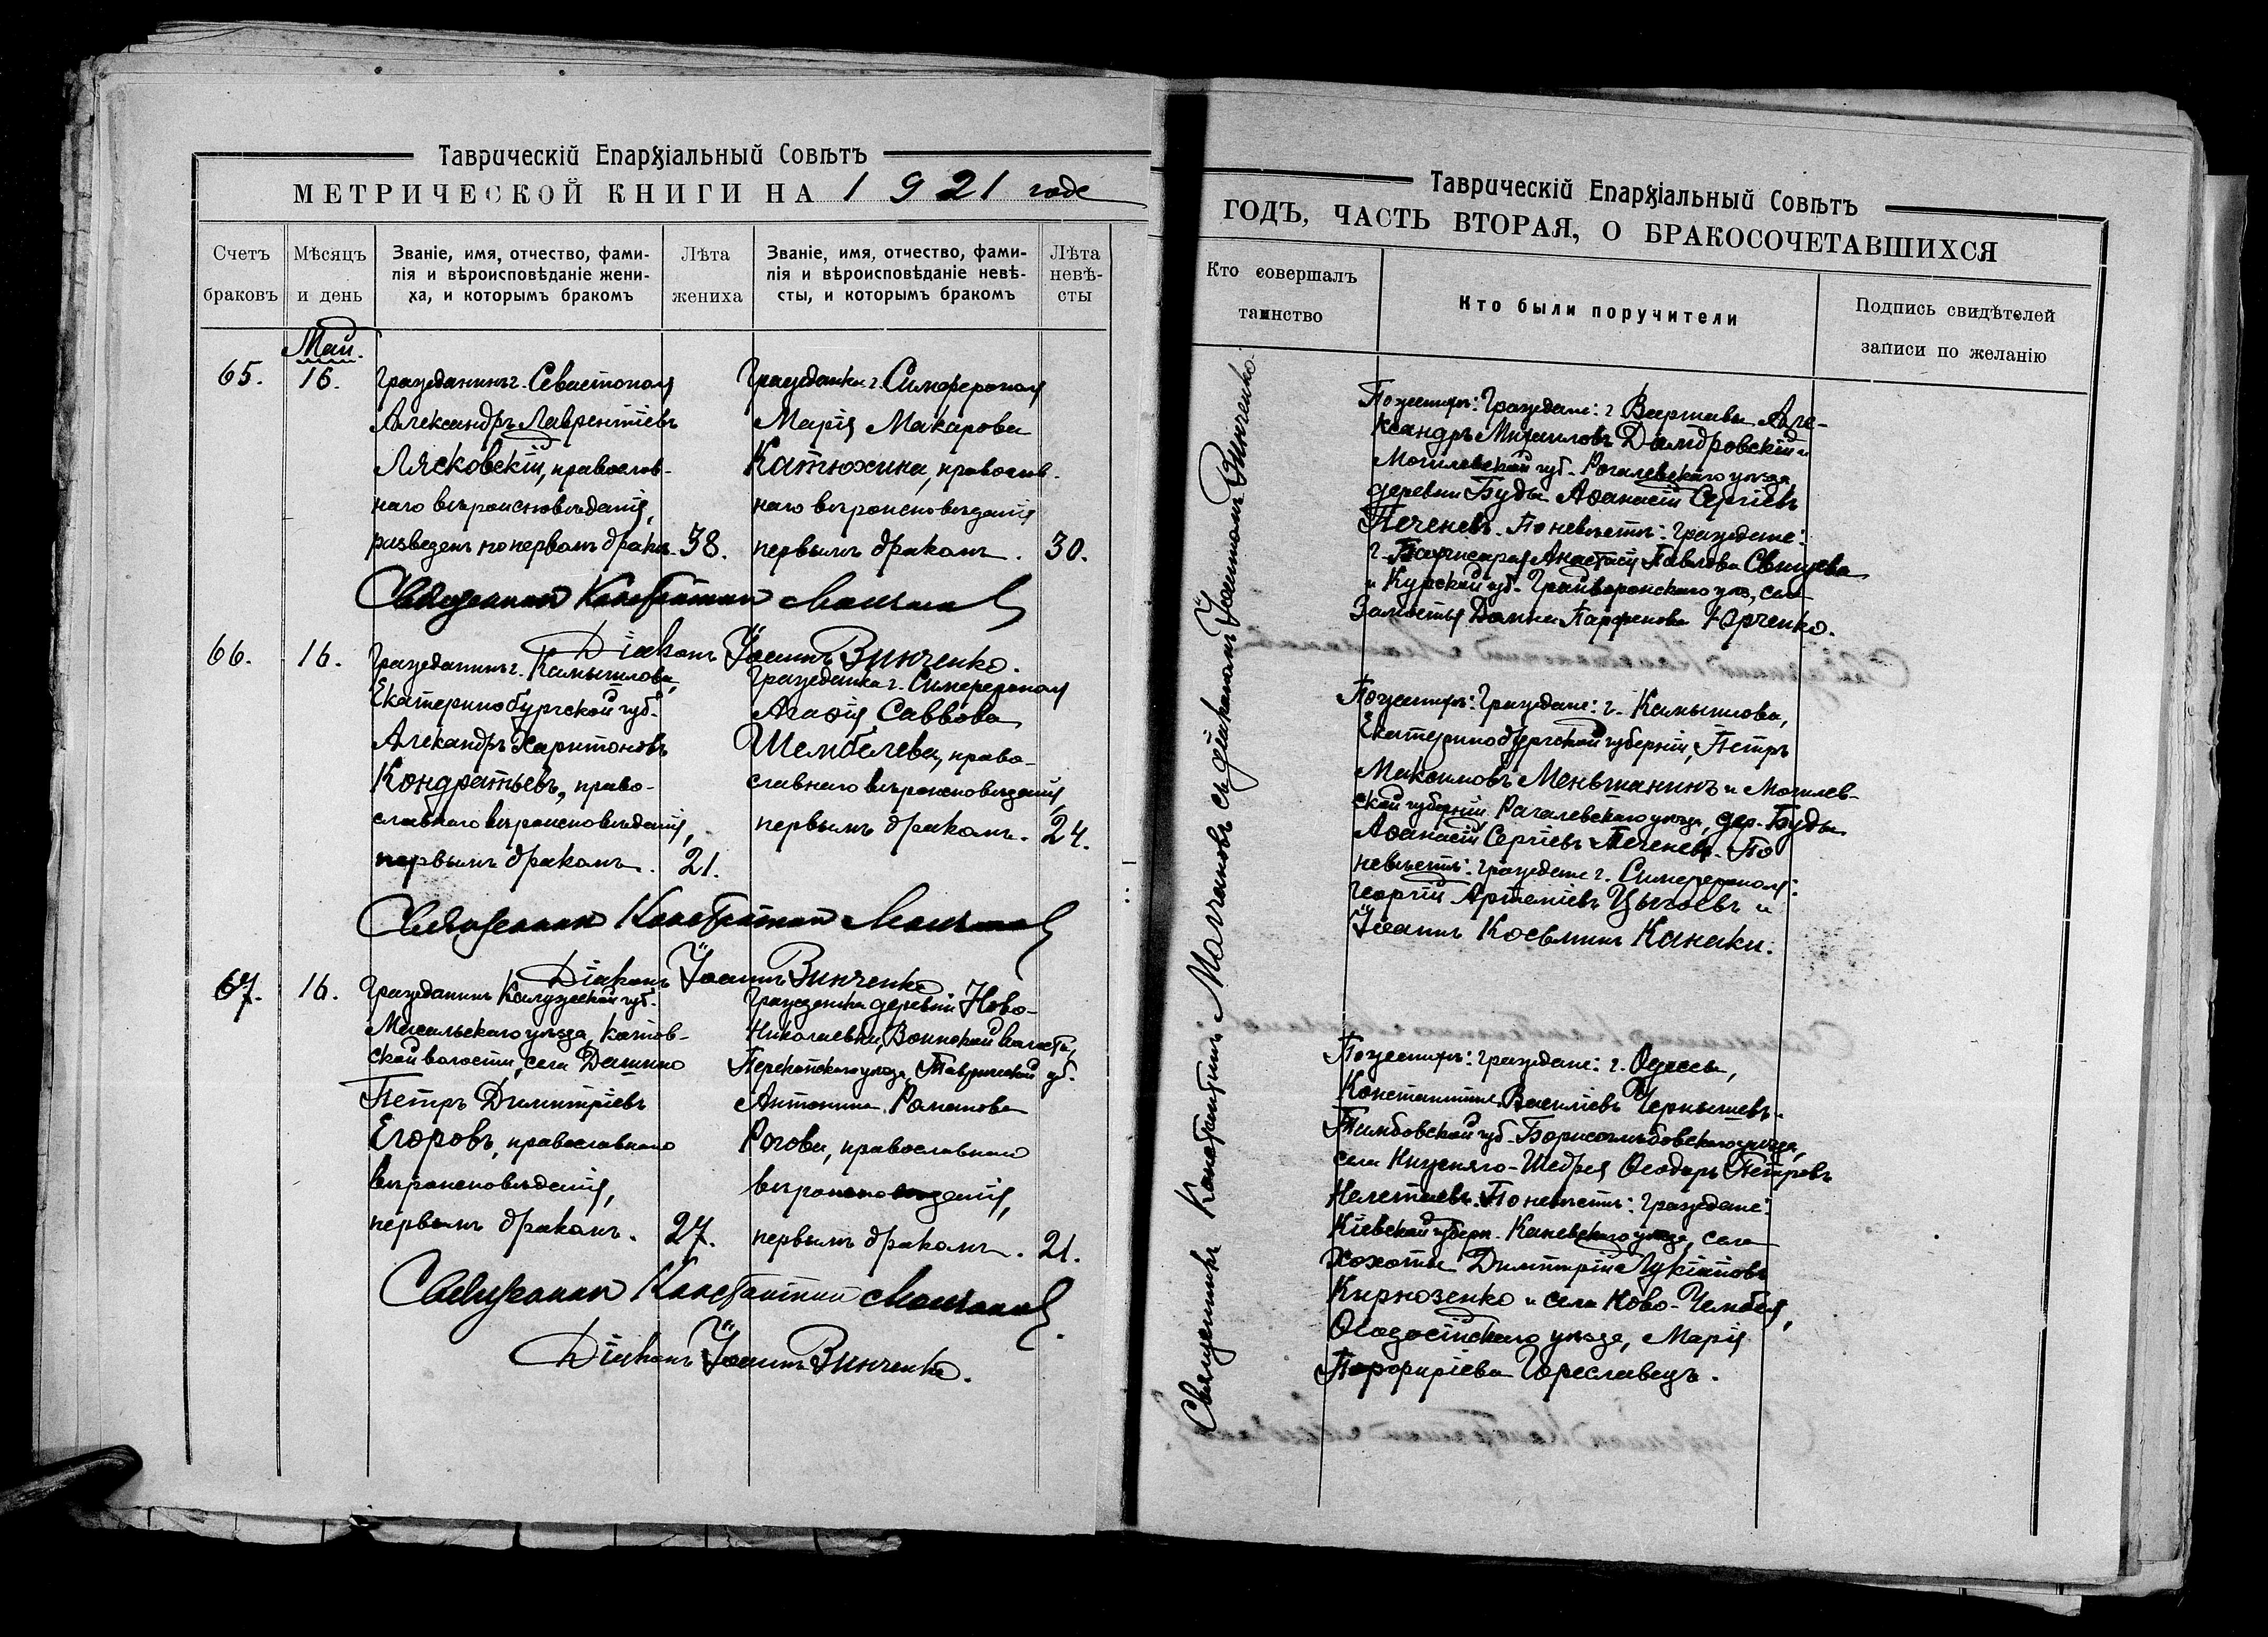 Таврическій Епархіальный Совѣтъ
МЕТРИЧЕСКОЙ КНИГИ НА 1921 годъ
Счетъ браковъ
Мѣсяцъ и день
Званіе, имя, отчество, фами-
лія и вѣроисповѣданіе жени-
ха, и которымъ бракомъ
Лѣта жениха
Званіе, имя, отчество, фами-
лія и вѣроисповѣданіе невѣ-
сты, и которымъ бракомъ
Лѣта невѣ-
сты
Май.
65.
16.
Гражданинъ г. Севастополя
Александръ Лаврентіевъ
Лясковскій, православ-
наго вѣроисповѣданія,
разведен по первом бракѣ.
38.
Гражданка г. Симферополя
Марія Макарова
Катюхина, православ.
наго вѣроисповѣданія
первымъ бракомъ.
30.
Священник Константин Молчанов
Діаконъ Іоаннъ Винченко.
66.
16.
Гражданинъ г. Камышлова,
Екатеринобургской губ.
Александръ Харитоновъ
Кондратьевъ, право-
славнаго вѣроисповѣданія,
первымъ бракомъ.
21.
Гражданка г. Симферополя
Агаѳія Саввова
Шембелева, право-
славнаго вѣроисповѣданія,
первымъ бракомъ.
24.
Священник Константин Молчанов
Діаконъ Іоаннъ Винченко
67.
16.
Гражданинъ Калужской губ.
Масальскаго уѣзда, Котов-
ской волости, села Дашино
Петръ Димитріевъ
Егоровъ, православнаго
вѣроисповѣданія,
первымъ бракомъ.
27.
Гражданка деревни Ново-
Николаевки, Воинской волости,
Перекопскаго уѣзда, Таврической губ.
Антонина Романова
Рогова, православнаго
вѣроисповѣданія,
первымъ бракомъ.
21.
Священник Константин Молчанов.
Діаконъ Іоаннъ Винченко.
Таврическій Епархіальный Совѣтъ
ГОДЪ, ЧАСТЬ ВТОРАЯ, О БРАКОСОЧЕТАВШИХСЯ
Кто совершалъ
таинство
Кто были поручители
Подпись свидѣтелей
записи по желанію
Священникъ Константинъ Молчановъ съ діакономъ Іоанномъ Винченко.
По женихѣ: Граждане: г. Варшавы Але-
ксандръ Михаиловъ Домбровскій и
Могилевской губ. Рогачевскаго уѣзда
деревни Буды Аѳанасій Сергіевъ
Печеневъ. По невѣстѣ: Граждане:
г. Бахчисарая Анастасія Павлова
и Курской губ. Грайворонскаго уѣз, села
Замостья Домна Парфенова Юрченко.
По женихѣ: Граждане: г. Камышлова,
Екатеринобургской губерніи, Петръ
Максимовъ Меньшанинъ и Могилев-
ской губерніи, Рогачевскаго уѣзда, дер. Буды
Аѳанасій Сергіевъ Печеневъ. По
невѣстѣ: граждане г. Симферополя:
Георгій Артеміевъ Цыгоевъ и
Іоаннъ Косьминъ Канаки.
По женихѣ: граждане: г. Одессы,
Константинъ Василіевъ Чернышевъ.
Тамбовской губ. Борисоглѣбовскаго уѣзда,
села Ѳеодоръ Петровъ
Налетаевъ. По невѣстѣ: Граждане:
Кіевской губерн. Каневскаго уѣзда, села
Хохотвы Димитрій Лукіановъ
Кирнозенко и села Ново-Чембая,
Ѳеодосійскаго уѣзда, Марія
Порфиріева Гореславецъ.